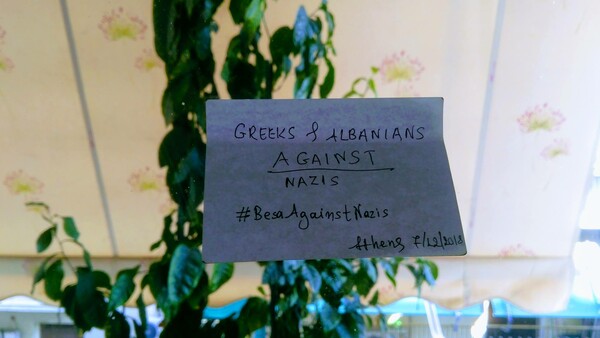 GREEKS & ALBANIANS
AGAINST
NAZIS
#BesaAgainstNazis
Athens 7/12/2018